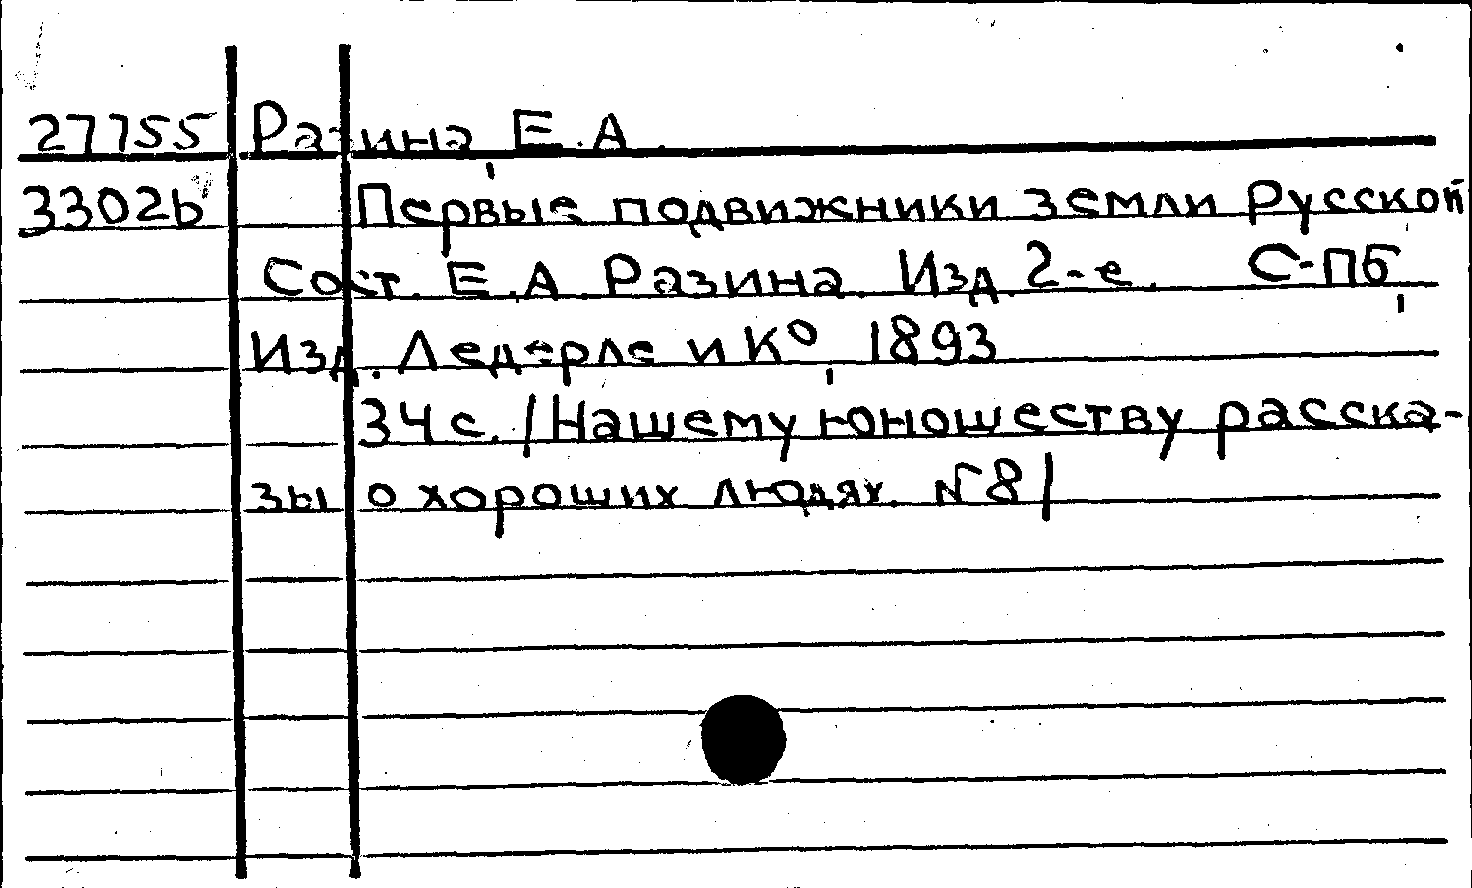 27755 Разина, Е.А.
3302b Первые подвижники земли Русской
Сост. Е.А. Разина. Изд. 2-е. С-ПБ,
Изд. Ледерле и К°, 1893
34 с. /Нашему юношеству расска-
зы о хороших людях. №8/